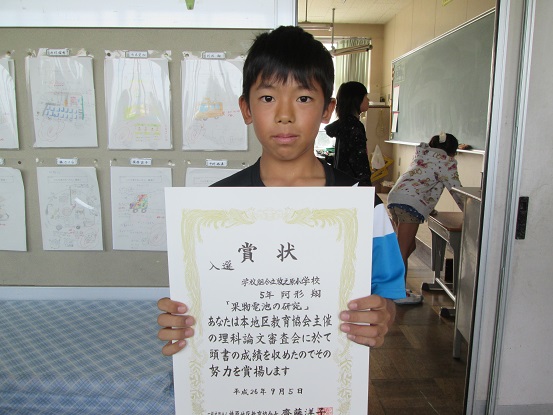 賞状
入選
学校組合立牧之原小学校
5年 阿形 翔
「果物電池の研究」
あなたは本地区教育協会主催
の理科論文審査会に於て
頭書の成績を収めたのでその
努力を賞揚します
平成26年9月5日
地区教育協会
齋藤洋子